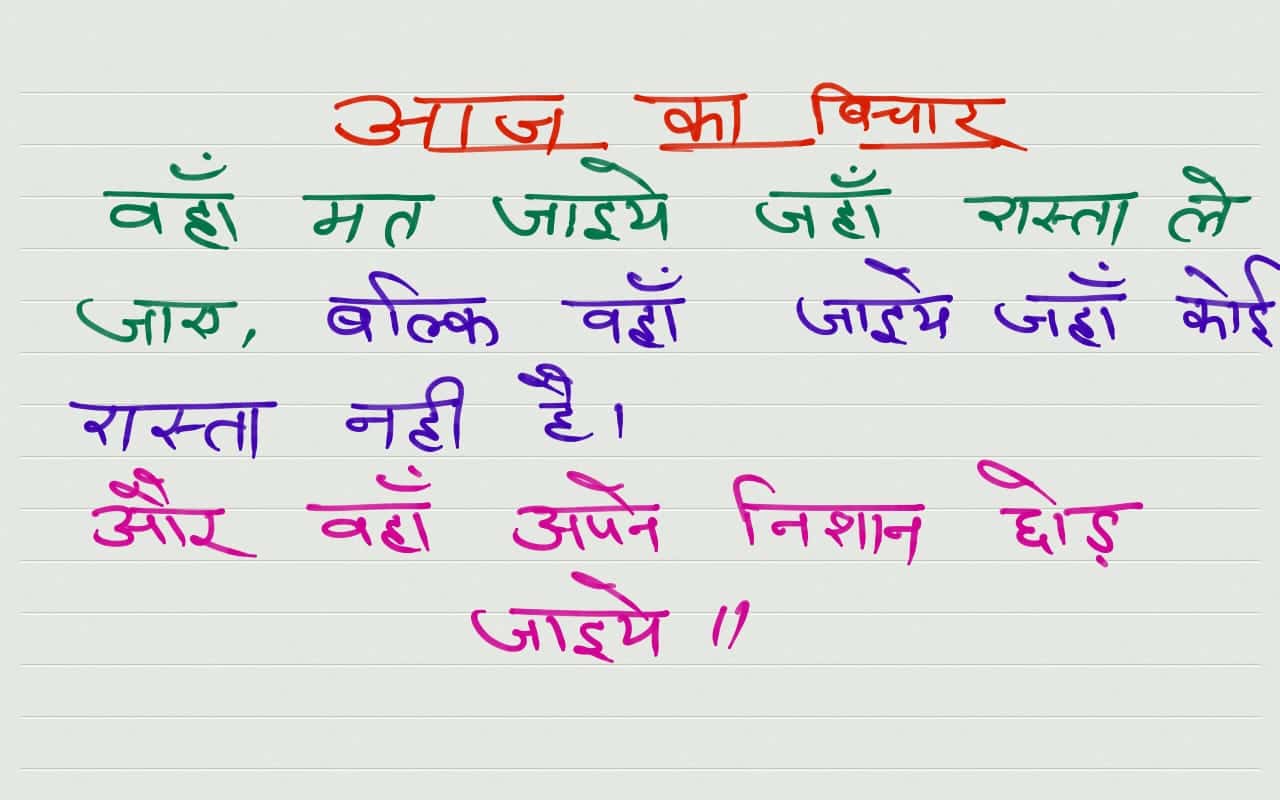 आज का बिचार
वहाँ मत जाइये जहाँ रास्ता ले
जाए, बल्कि वहाँ जाइये जहाँ कोई
रास्ता नही है।
और वहाँ अपने निशान छोड़
जाइये ॥